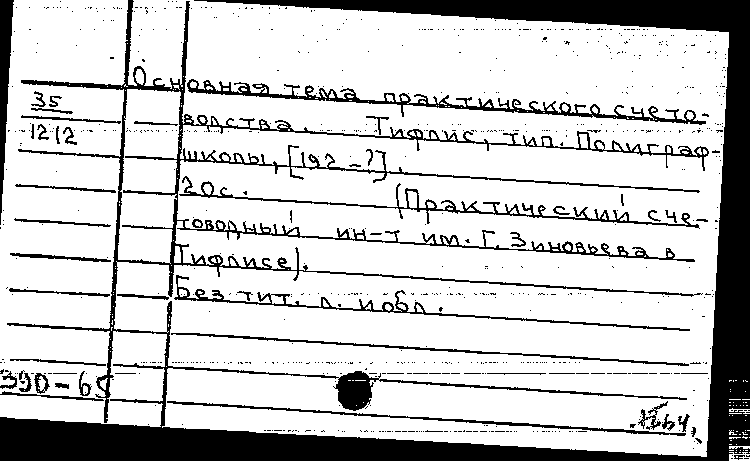 Основная тема практического счето-
35
1212
водства. Тифлис, тип. Полиграф-
школы, [192-?].
20с. (Практический сче-
товодный ин-т им. Г. Зиновьева в
Тифлисе).
Без тит. л. и обл.
390-65